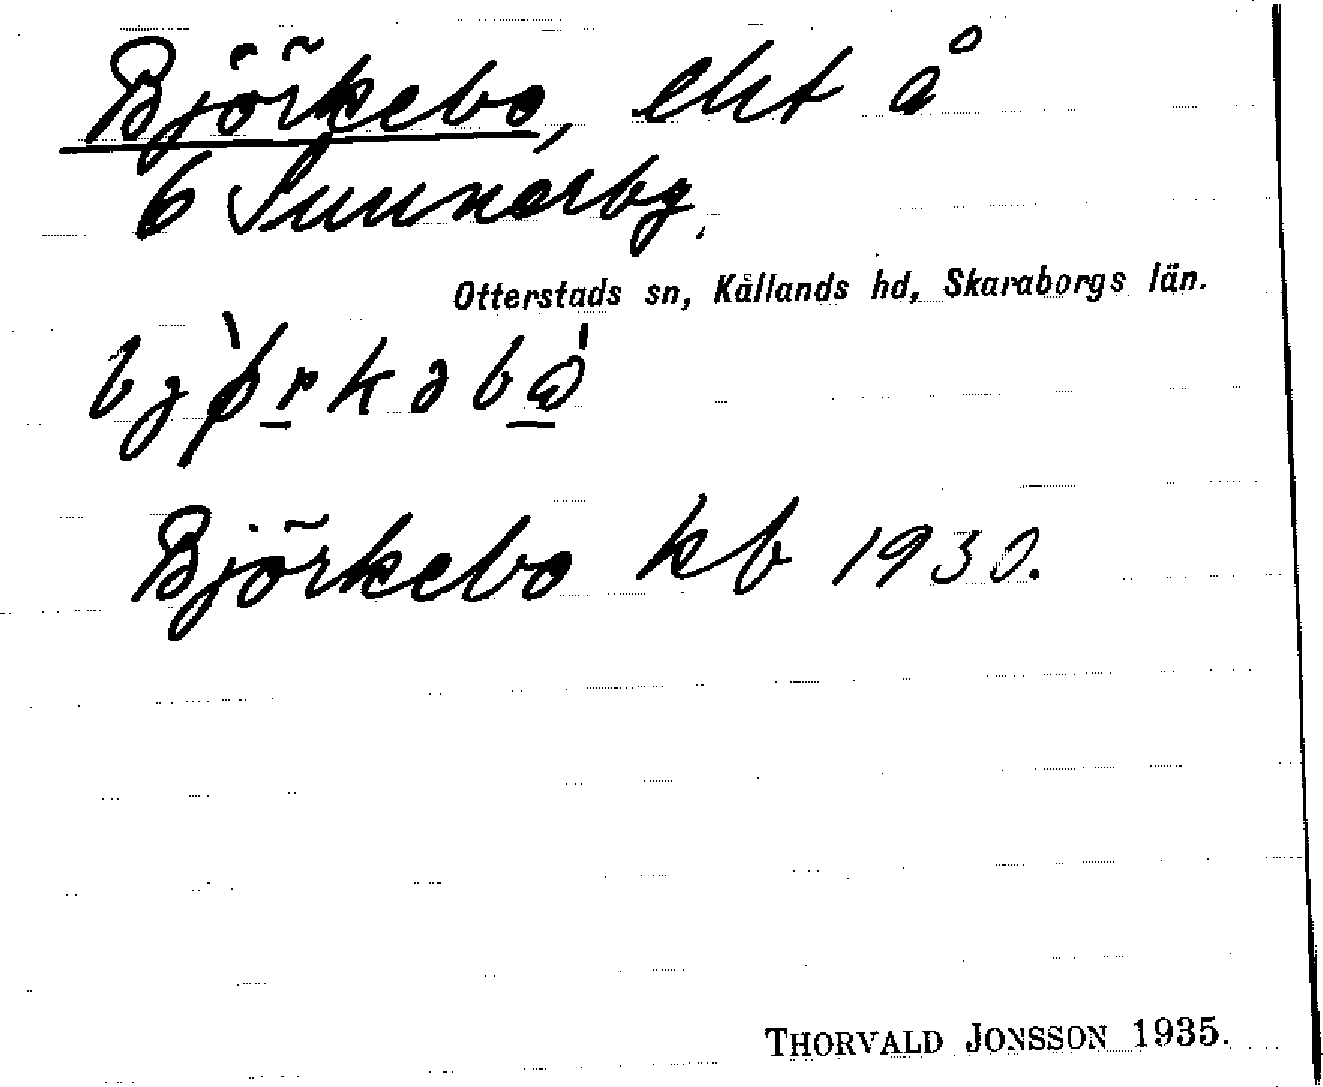 Björkebo, elst å
6 Sunnerby.
Otterstads sn, Kållands hd, Skaraborgs län.
bjø̀rkəbὼ
Björkebo kb 1930.
THORVALD JONSSON 1935.